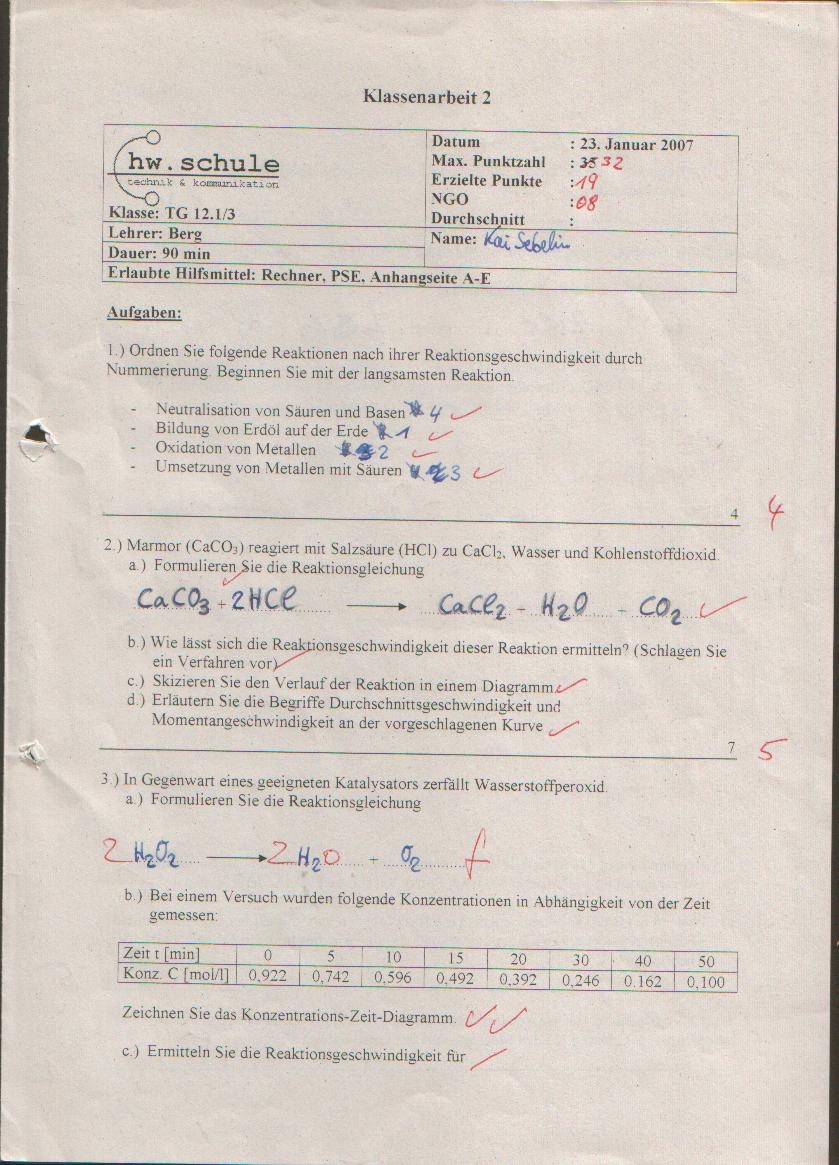 Klassenarbeit 2
hw.schule
technik & kommunikation
Klasse: TG 12.1/3
Lehrer: Berg
Dauer: 90 min
Datum : 23. Januar 2007
Max. Punktzahl : 35 32
Erzielte Punkte : 19
NGO : 08
Durchschnitt :
Name: Kai Sebelin
Erlaubte Hilfsmittel: Rechner, PSE, Anhangseite A-E
Aufgaben:
1.) Ordnen Sie folgende Reaktionen nach ihrer Reaktionsgeschwindigkeit durch
Nummerierung. Beginnen Sie mit der langsamsten Reaktion.
- Neutralisation von Säuren und Basen 4
- Bildung von Erdöl auf der Erde 1
- Oxidation von Metallen 2
- Umsetzung von Metallen mit Säuren 3
4 4
2.) Marmor (CaCO3) reagiert mit Salzsäure (HCl) zu CaCl2, Wasser und Kohlenstoffdioxid.
a.) Formulieren Sie die Reaktionsgleichung
CaCO3 + 2HCl → CaCl2 + H2O + CO2
b.) Wie lässt sich die Reaktionsgeschwindigkeit dieser Reaktion ermitteln? (Schlagen Sie
ein Verfahren vor)
c.) Skizieren Sie den Verlauf der Reaktion in einem Diagramm.
d.) Erläutern Sie die Begriffe Durchschnittsgeschwindigkeit und
Momentangeschwindigkeit an der vorgeschlagenen Kurve
7 5
3.) In Gegenwart eines geeigneten Katalysators zerfällt Wasserstoffperoxid.
a.) Formulieren Sie die Reaktionsgleichung
2 H2O2 → 2 H2O + O2 f
b.) Bei einem Versuch wurden folgende Konzentrationen in Abhängigkeit von der Zeit
gemessen:
Zeit t [min] 0 5 10 15 20 30 40 50
Konz. C [mol/l] 0,922 0,742 0,596 0,492 0,392 0,246 0.162 0,100
Zeichnen Sie das Konzentrations-Zeit-Diagramm.
c.) Ermitteln Sie die Reaktionsgeschwindigkeit für